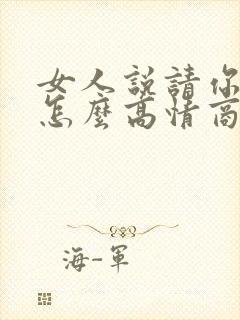 女人說請你
怎麼高情商
海-軍